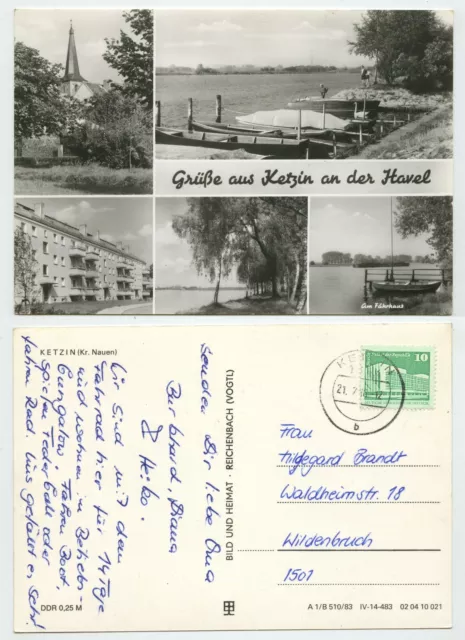 Grüße aus Ketzin an der Havel
Am Fährhaus
KETZIN (Kr. Nauen)
Wir sind mit dem
Fahrrad hier für 14 Tage
und wohnen im Betriebs-
bungalow. Fahren Boot,
spielen Federball oder
fahrn Rad. Uns gefällt es sehr.
Senden Dir liebe Oma
Burkhard, Diana
& Heiko.
DDR 0,25 M
BILD UND HEIMAT · REICHENBACH (VOGTL)
10
21.7.
b
Frau
Hildegard Brandt
Waldheimstr. 18
Wildenbruch
1501
A 1/B 510/83 IV-14-483 02 04 10 021